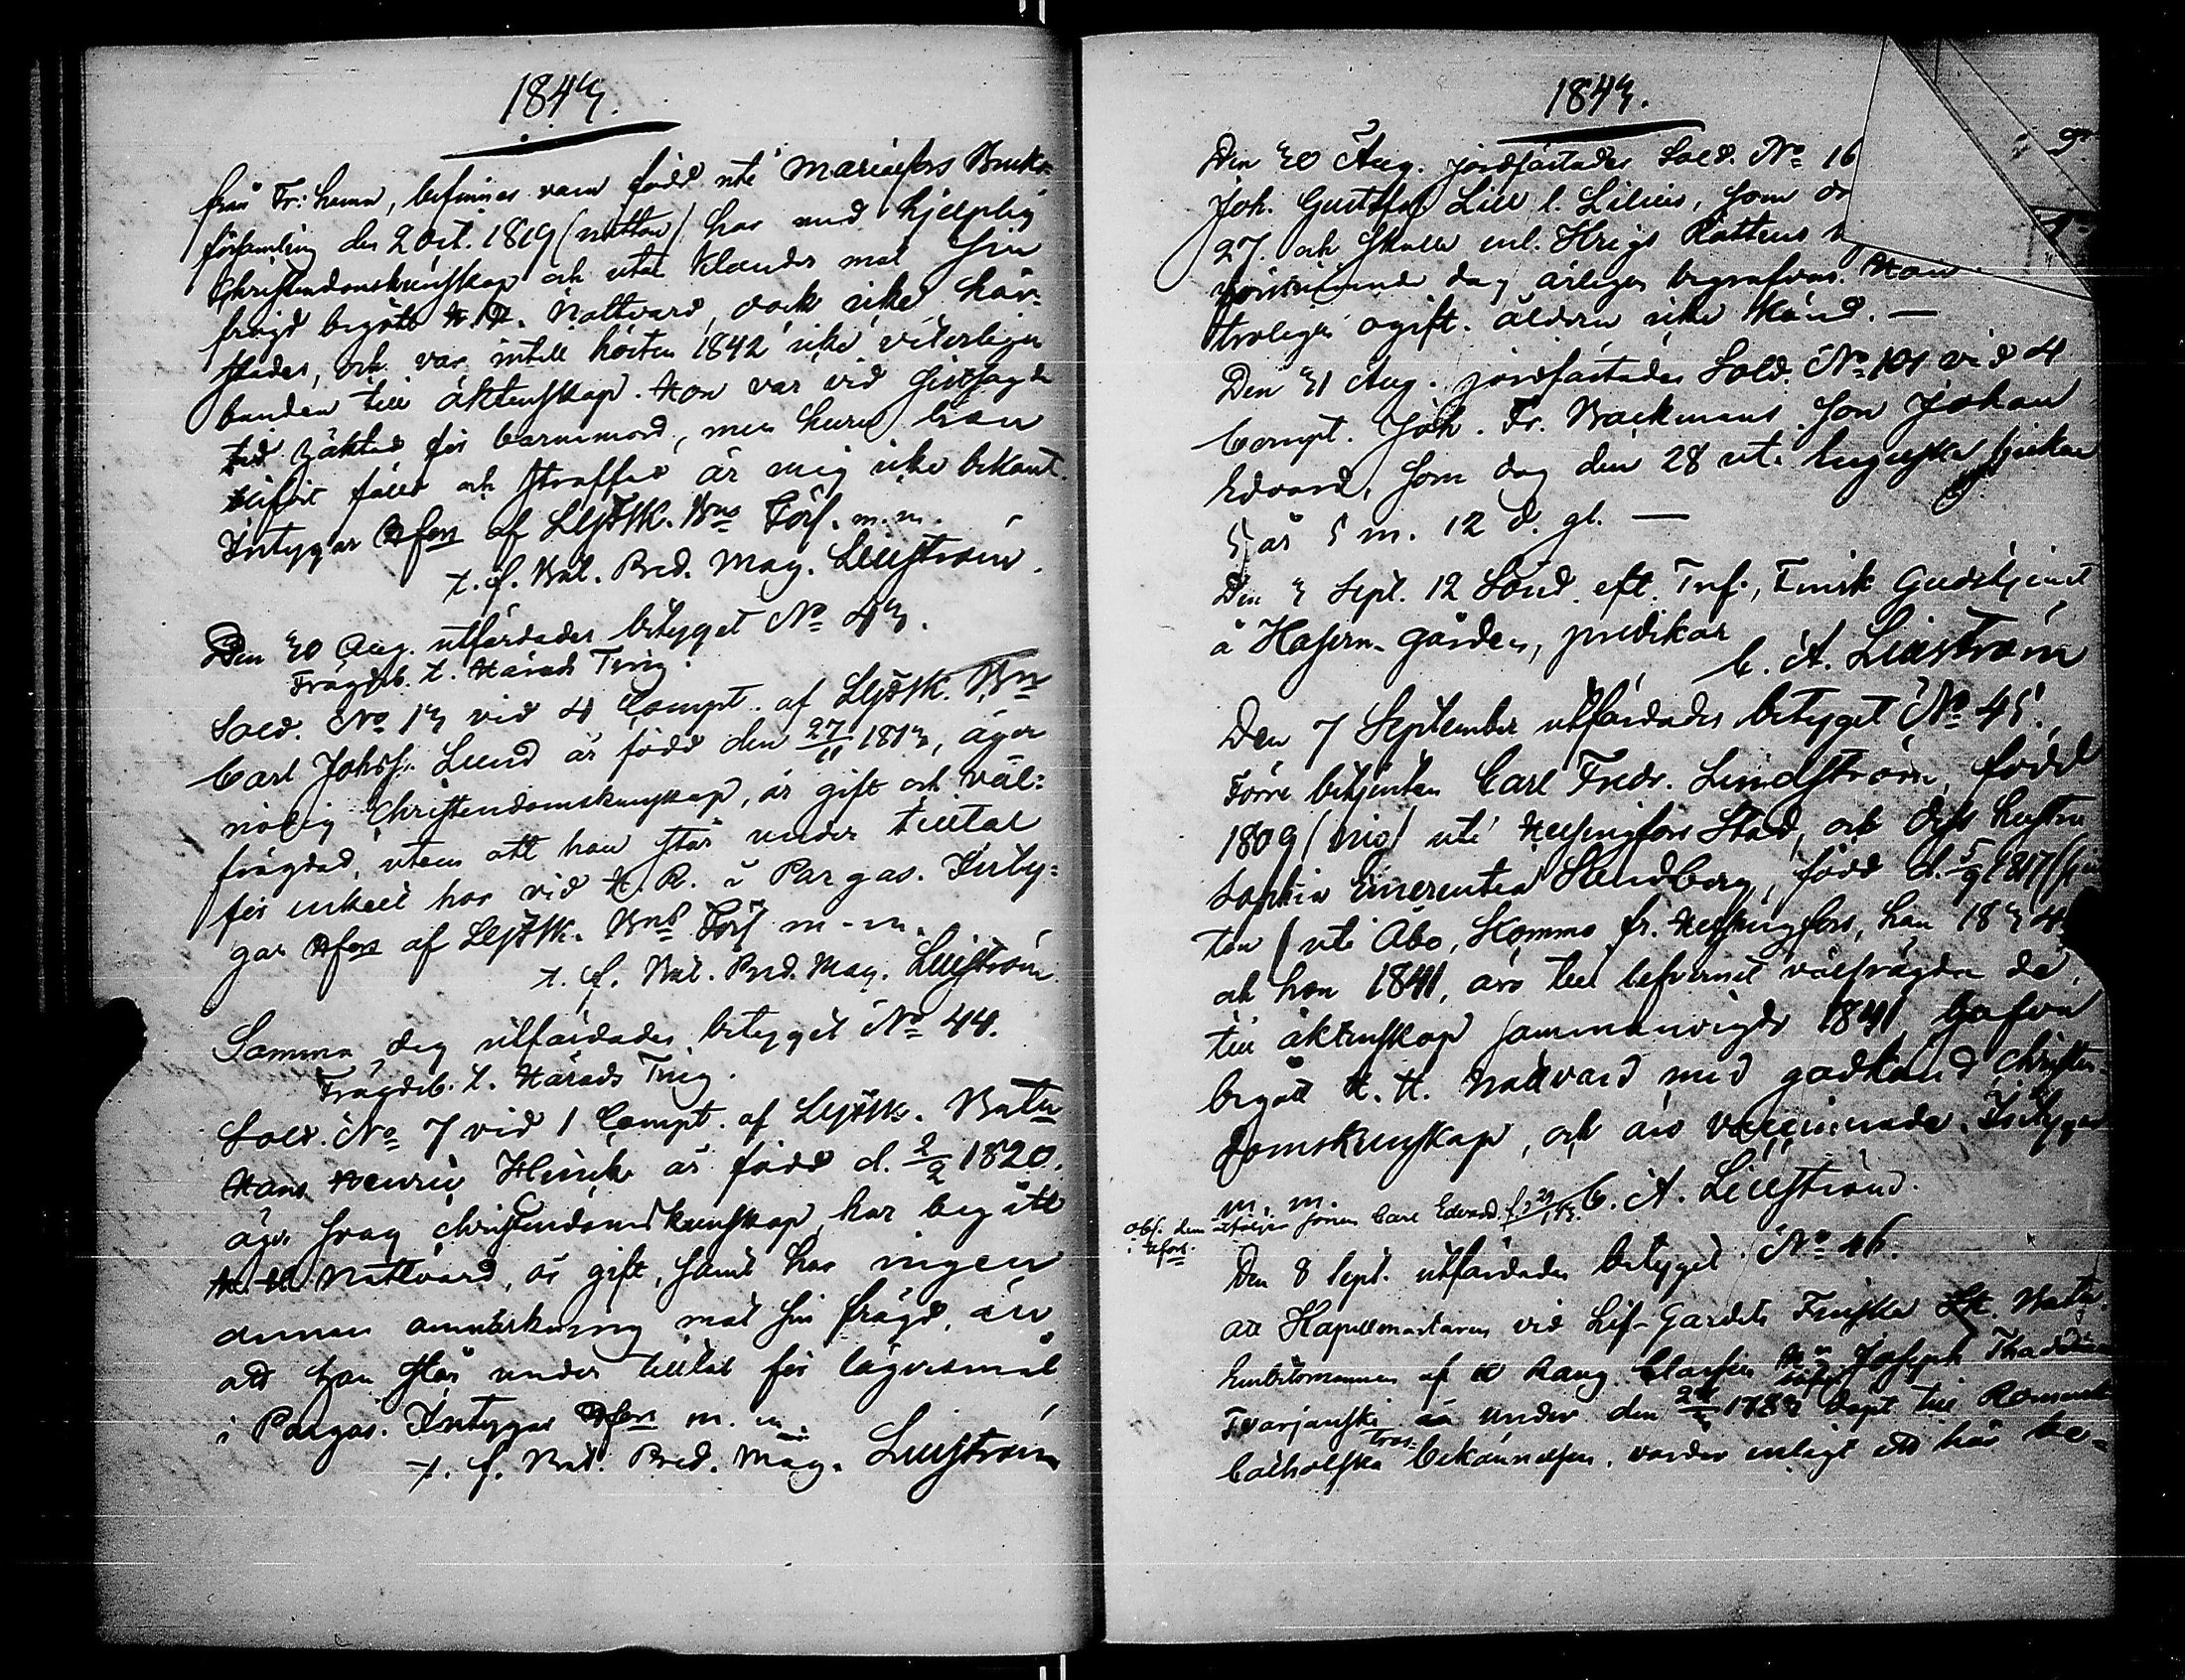 1843.
från Fr:hamn, befinnes vara född uti Mariæfors Bruks
församling den 2 Oct. 1819 (nitton) har med hjelplig
Christendomskunskap och utan klander mot sin
frägd begått H. H. Nattvard, dock icke här-
städes, och var intill hösten 1842 icke veterligen
bunden till äktenskap. Hon var vid sistsagde
tid häktad för barnamord, men huru hon
blifvit fälld och straffad är mig icke bekant.
Intygar Hfors af LGFSk. Bns Förs. m.m.
t. f. Bat. Pred. Mag. Lillström.
Den 30 Aug. utfärdades betyget No 43.
Frägdeb. t. Härads Ting.
Sold. No 13 vid 4 Compt. af LGFSk. Bn
Carl Johss. Lund är född den 27/11 1813, äger
nödig Christendomskunskap, är gift och väl-
frägdad, utom att han står under tilltal
för enkelt hor vid H. R. i Pargas. Inty-
gar Hfors af LGFSk. Bns Förs m.m.
t. f. Bat. Pred. Mag. Lillström
Samma dag utfärdades betyget No 44.
Frägdeb. t. Härads Ting.
Sold. No 7 vid 1 Compt. af LGFSk. Batn
Hans Henric Flinck är född d. 2/2 1820.
äger svag christendomskunskap, har begått
H. H. Nattvard, är gift, samt har ingen
annan anmärkning mot sin frägd, än
att han står under tilltal för lägersmål
i Pargas. Intygar Hfors m. m.
t. f. Bat. Pred. Mag. Lillström
1843.
Den 30 Aug. jordfästades Sold. No 16
Joh. Gustaf Lill l. Lilius, som
27. och skulle enl. Krigs Rättens
dag ärligen begrafvas. Han
troligen ogift. åldern icke känd. —
Den 31 Aug. jordfästades Sold. No 101 vid 4
Compt. Joh. Fr. Backmans son Johan
Edvard, som dog den 28 ut. Engelska sjukan
3 år 5 m. 12 d. gl. —
Den 3 Sept. 12 Sönd. eft. Tref., Finsk Gudstjenst
å Kasern-gården, predikar
C. A. Lillström
Den 7 September utfärdades betyget No 45.
Förre betjenten Carl Fredr. Lindström, född
1809 (nio) uti Helsingfors Stad, och dess hustru
Sophia Emerentia Sandberg, född d. 5/9 1817 (sju
ton) uti Åbo, Komma fr. Helsingfors, han 1834
och hon 1841, äro till befunnit välfrägdade
till äktenskap sammanvigde 1841, hafva
begått H. H. Nattvard med godkänd christen-
domskunskap, och äro vaccinerade. Intygar
m. m. C. A. Lillström.
Obs. dem åtföljer sonen Carl Edvard
i Hfors.
Den 8 Sept. utfärdades betyget No 46.
Att Kapellmästaren vid Lif-Gardets Finska Sk. Batn.
Embetsmannen af Rang Classen Joseph Thaddeus
Tvarjanski är under den 1783 döpt till Romersk
Catholska trosbekännelsen, varder enligt ett här be-